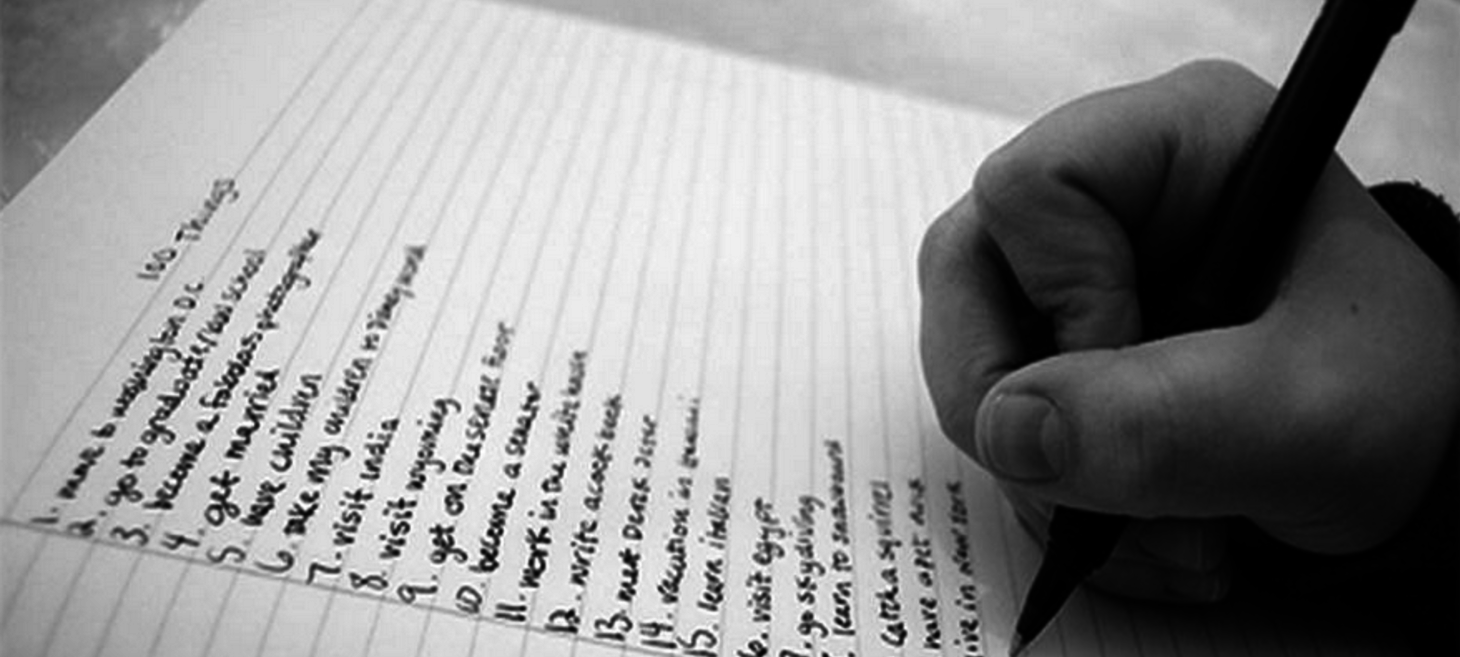 100 Things
1. move to washington DC
2. go to graduate/law school
3. become a fabulous photographer
4. get married
5. have children
6. take my children to Disney world
7. visit india
8. visit wyoming
9. get on the senate floor
10. become a senator
11. work in the white house
12. write a cook book
13. meet Derek Jeter
14. vacation in
15. learn italian
6. visit egypt
7. go skydiving
. learn to snowboard
catch a squirrel
have a pet duck
live in New York